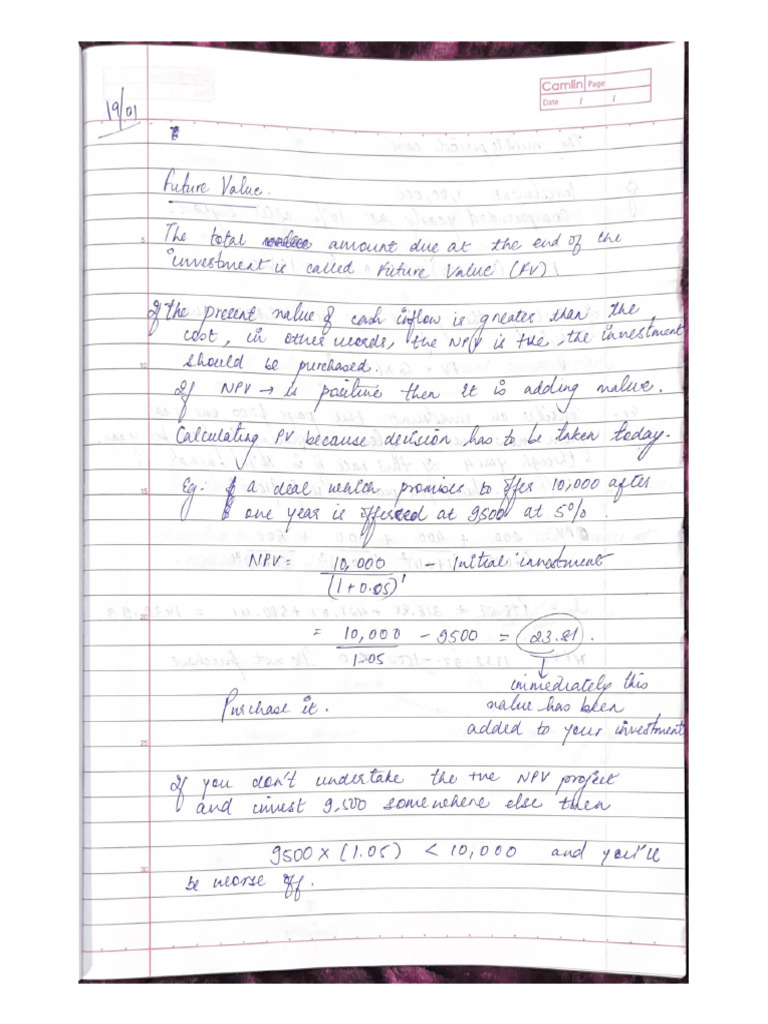 Camlin Page
Date / /
19/01
Future Value.
The total amount due at the end of the
investment is called Future Value (FV)
If the present value of cash inflow is greater than the
cost, in other words, the NPV is +ve, the investment
should be purchased.
If NPV → is positive then it is adding value.
Calculating PV because decision has to be taken today.
Eg: a deal which promises to offer 10,000 after
one year is offered at 9500 at 5%.
NPV = 10,000 - Initial investment
(1+0.05)¹
= 10,000 - 9500 = 23.81.
1.05
immediately this
Purchase it. value has been
added to your investment
If you don't undertake the +ve NPV project
and invest 9,500 somewhere else then
9500 x (1.05) < 10,000 and you'll
be worse off.
5
10
15
20
25
30